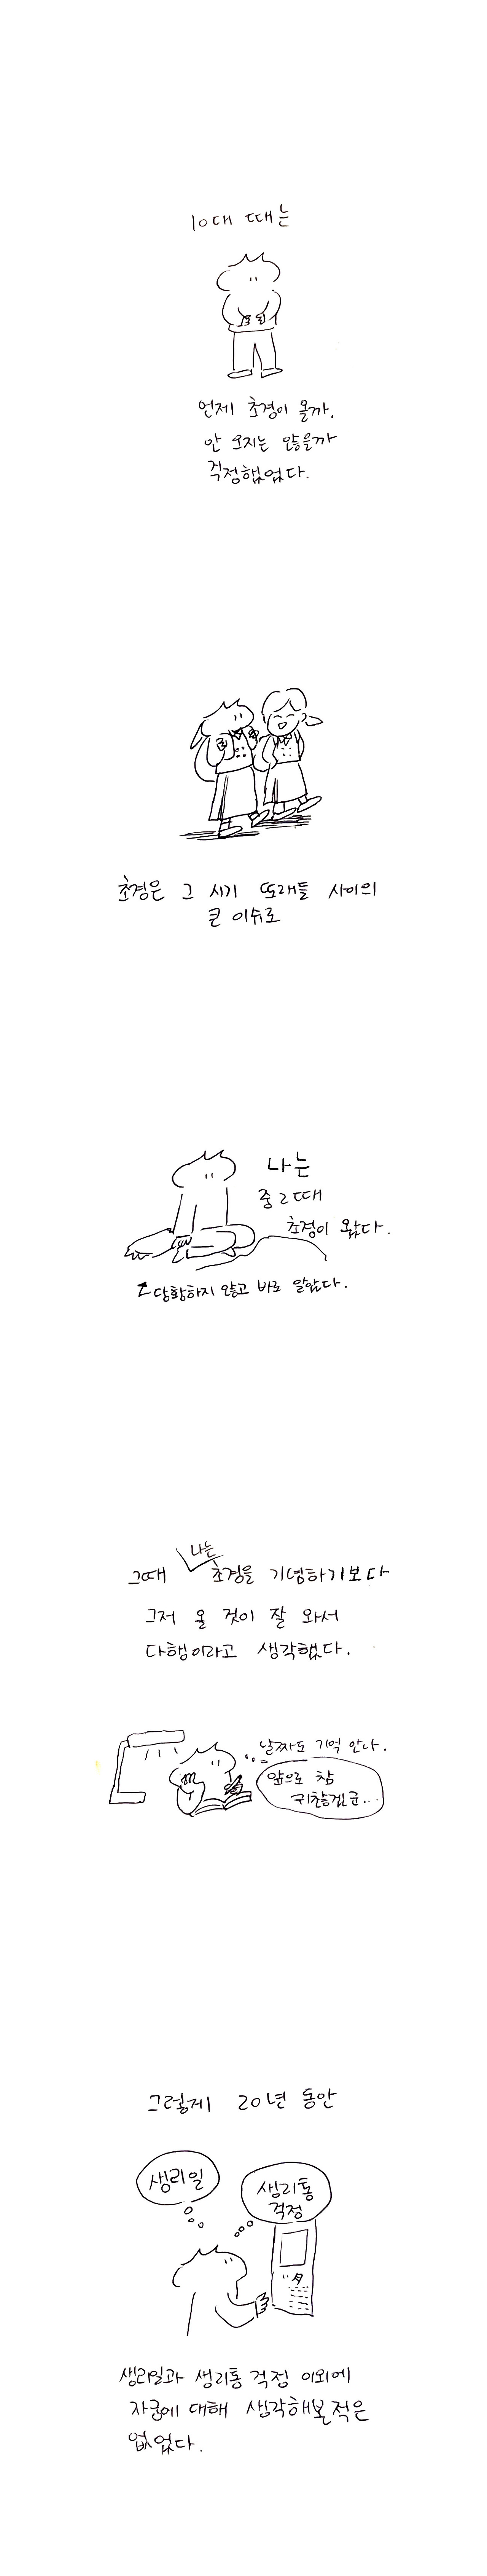 10대 때는
언제 초경이 올까,
안 오지는 않을까
걱정했었다.
초경은 그 시기 또래들 사이의
큰 이슈로
나는
중2때
초경이 왔다.
당황하지 않고 바로 알았다.
그때 나는 초경을 기념하기보다
그저 올 것이 잘 와서
다행이라고 생각했다.
날짜도 기억 안나.
앞으로 참
귀찮겠군...
그렇게 20년 동안
생리일
생리통
걱정
생리일과 생리통 걱정 이외에
자궁에 대해 생각해본적은
없었다.